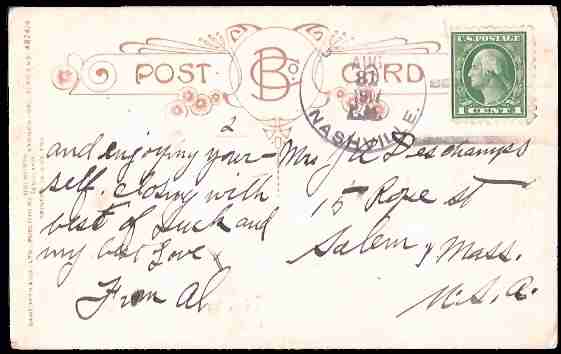 POST CARD
B Co
AUG
31
1917
NASHVI E.
U.S. POSTAGE
1 CENT 1
2
and enjoying your-
self. closing with
best of luck and
my best Love
From Al
Mrs J A Deschamps
15 Rope st
Salem, Mass.
U.S.A.